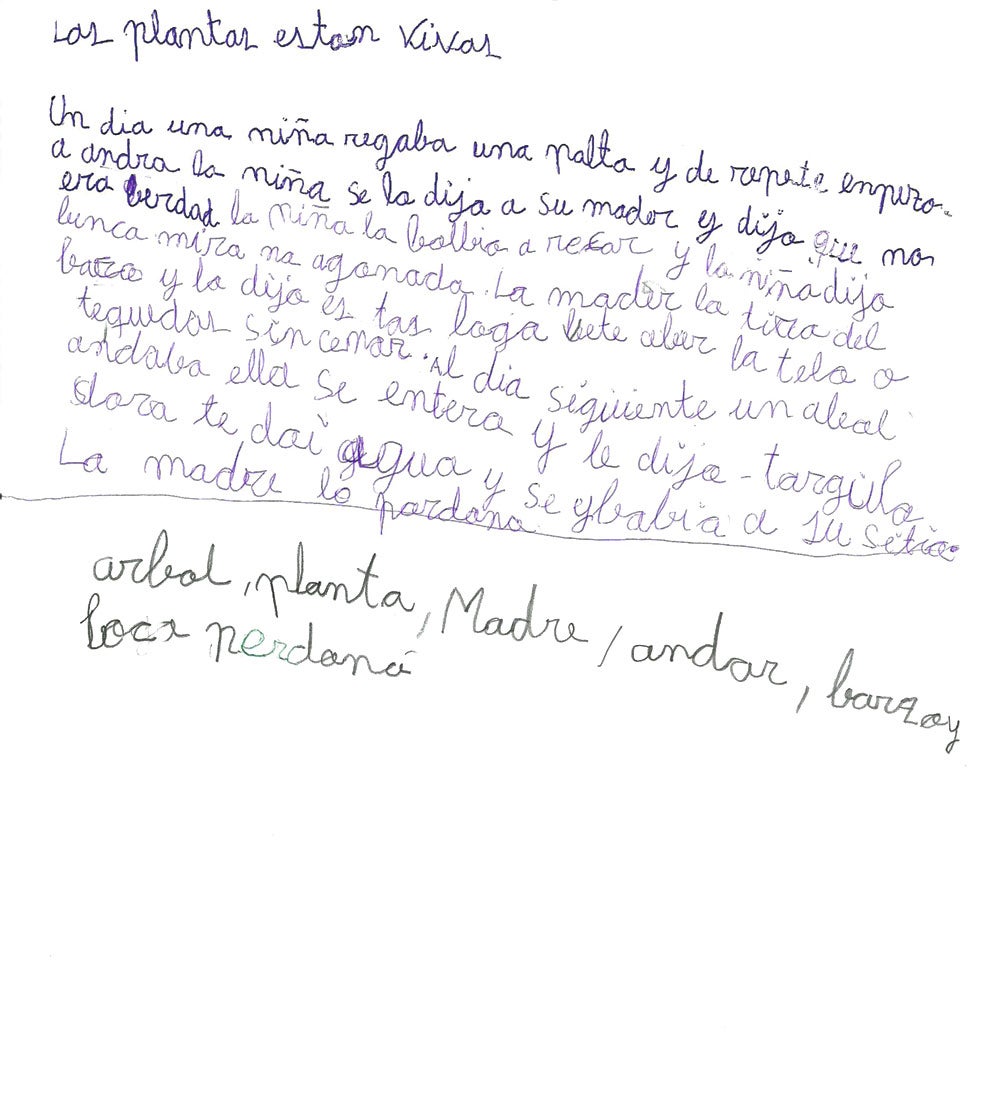 Las plantas estan vivas
Un dia una niña regaba una palta y de repete enpezo
a andra la niña se lo dijo a su mader y dijo que no
era berdad la niña la bolbio a recar y la niña dijo
lunca mira na agonada. La mader la tira del
batzo y lo dijo es tas loga bete aber la tele o
tequedas sin cenar. Al dia siguiente un aleal
andaba ella se entera y le dijo - targuilo
slora te dai agua y se ybabia a su setio
La madre lo pardona
arbol, planta, Madre / andar, barzoy
loca perdona